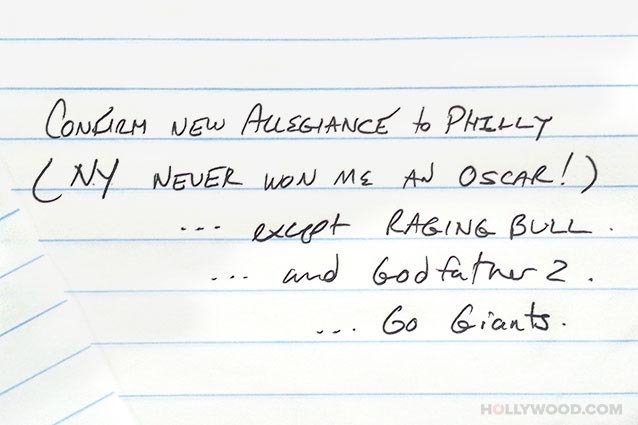 CONFIRM NEW ALLEGIANCE to PHILLY
(NY NEVER WON ME AN OSCAR!)
... except RAGING BULL.
... and Godfather 2.
... Go Giants.
HOLLYWOOD.COM